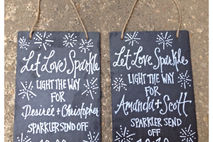 Let Love Sparkle
LIGHT THE WAY
FOR
Desireé + Christopher
SPARKLER SEND OFF
Let Love Sparkle
LIGHT THE WAY
FOR
Amanda + Scott
SPARKLER SEND OFF